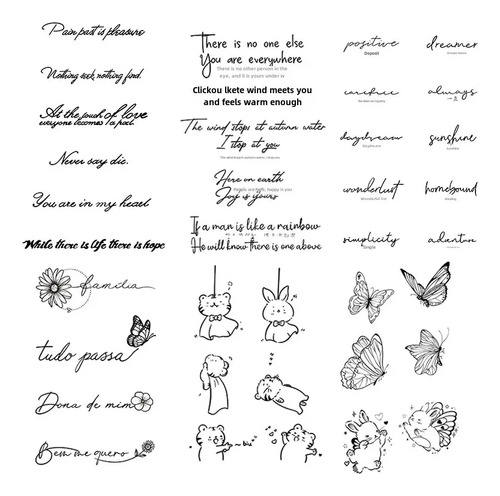 Pain past is pleasure
Nothing seek, nothing find.
At the touch of love
everyone becomes a poet.
Never say die.
You are in my heart
While there is life there is hope
There is no one else
You are everywhere
There is no other person in the
eye, and it is yours under w
Clickou lkete wind meets you
and feels warm enough
The wind stops at autumn water
I stop at you
Here on earth
Joy is yours
If a man is like a rainbow
He will know there is one above
positive
dreamer
carefree
always
daydream
sunshine
wanderlust
homebound
simplicity
Simple
família
tudo passa
Dona de mim
Bem me quero